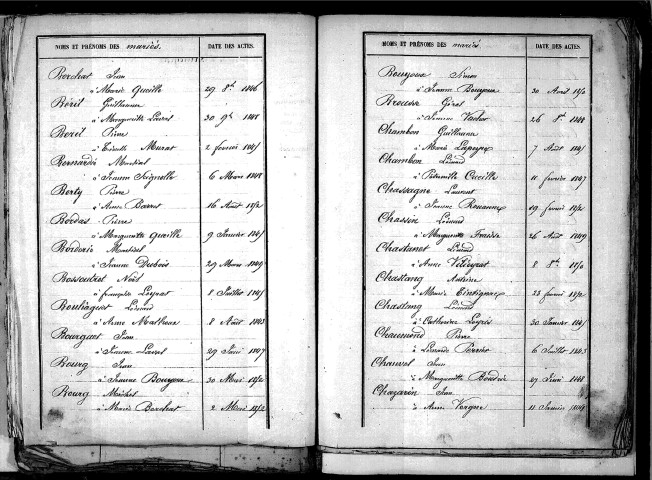 NOMS ET PRÉNOMS DES mariés. DATE DES ACTES.
Borchat Jean
à Marie Queille 29 8bre 1846
Béril Guillaume
à Marguerite 30 9bre 1848
Beril Pierre
à Murat 2 février
Bernardin Martial
à Jeanne 6 Mars 1848
Berty Pierre
à Anne Barret 16 Août 1852
Bordas Pierre
à Marguerite Queille 9 Janvier
Borderie Martial
à Jeanne Dubois 29 Mars 1849
Bossoutrot Noël
à françoise Leyrat 8 Juillet
Bouhaguet Léonard
à Anne Mathieu 8 Août 1843
Bourguet Jean
à Jeanne Laval 29 Juin 1847
Bourg Jean
à Jeanne 30 Mars 1852
Bourg Michel
à Marie Borchat 2 Mars 1852
NOMS ET PRÉNOMS DES mariés. DATE DES ACTES.
Bouyoux Simon
à Jeanne Bouyoux 30 Avril 1850
Brousse Géral
à Jeanne Vachor 26 8bre 1848
Chambon Guillaume
à Marie Lapeyre 7 Août
Chambon Léonard
à Petronille Queille 11 février 1847
Chassagne Laurent
à Jeanne Rouanne 19 février 1852
Chassin Léonard
à Marguerite Fraisse 26 Août 1849
Chastanet Léonard
à Anne 8 8bre 1850
Chastang Antoine
à Marie Tintignac 23 février 1852
Chastang Léonard
à Catherine 30 Janvier
Chaumond Pierre
à Léonarde Perrier 6 Juillet 1843
Chauvel Jean
à Marguerite Bordas 27 Juin 1848
Chazarin Jean
à Anne Vergne 11 Janvier